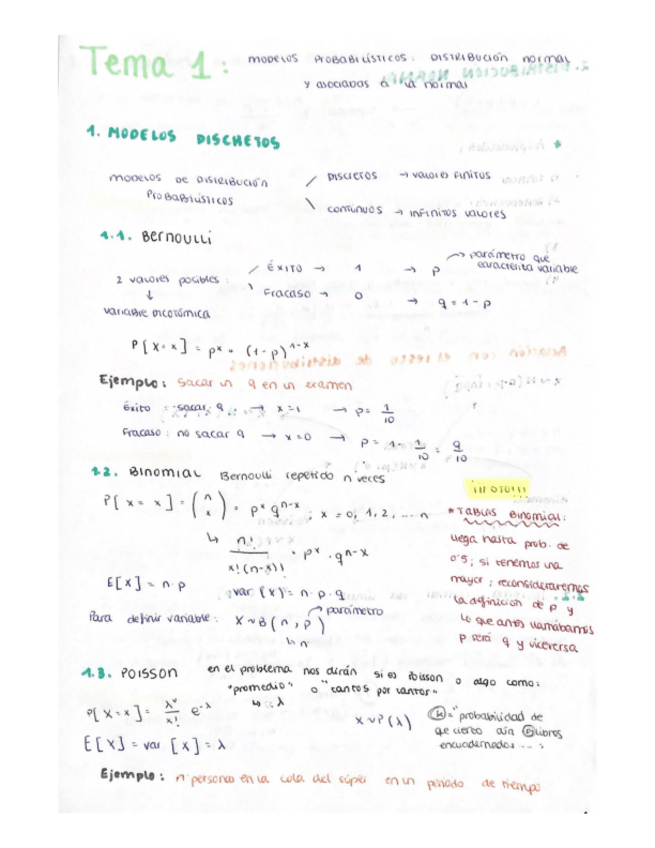 Tema 1: MODELOS PROBABILÍSTICOS: DISTRIBUCIÓN NORMAL
Y ASOCIADAS A LA NORMAL
1. MODELOS DISCRETOS
MODELOS DE DISTRIBUCIÓN PROBABILÍSTICOS
/ DISCRETOS → VALORES FINITOS
\ CONTINUOS → INFINITOS VALORES
1.1. Bernoulli
2 valores posibles:
/ ÉXITO → 1 → p → parámetro que caracteriza variable
\ Fracaso → 0 → q = 1 - p
↓
variable dicotómica
P[X=x] = p^x · (1-p)^{1-x}
Ejemplo: Sacar un 9 en un examen
Éxito: sacar 9 → x=1 → p = 1/10
Fracaso: no sacar 9 → x=0 → p = 1 - 1/10 = 9/10
1.2. BINOMIAL Bernoulli repetido n veces
P[X=x] = (n x) = p^x q^{n-x}; x = 0, 1, 2, ... n
↳ n! / x!(n-x)! · p^x · q^{n-x}
E[X] = n·p var[X] = n·p·q
Para definir variable: X~B(n,p) → parámetro
↳ n
¡¡¡OJO!!!
*TABLAS BINOMIAL:
llega hasta prob. de
0'5; si tenemos una
mayor; reconsideraremos
la definición de p y
lo que antes llamábamos
p será q y viceversa
1.3. POISSON en el problema nos dirán si es Poisson o algo como:
"promedio" o "tantos por tantos"
↳ λ
P[X=x] = λ^x/x! e^{-λ}
X~P(λ)
"probabilidad de
que cierto día libros
encuadernados ...
E[X] = var[X] = λ
Ejemplo: nº personas en la cola del súper en un periodo de tiempo